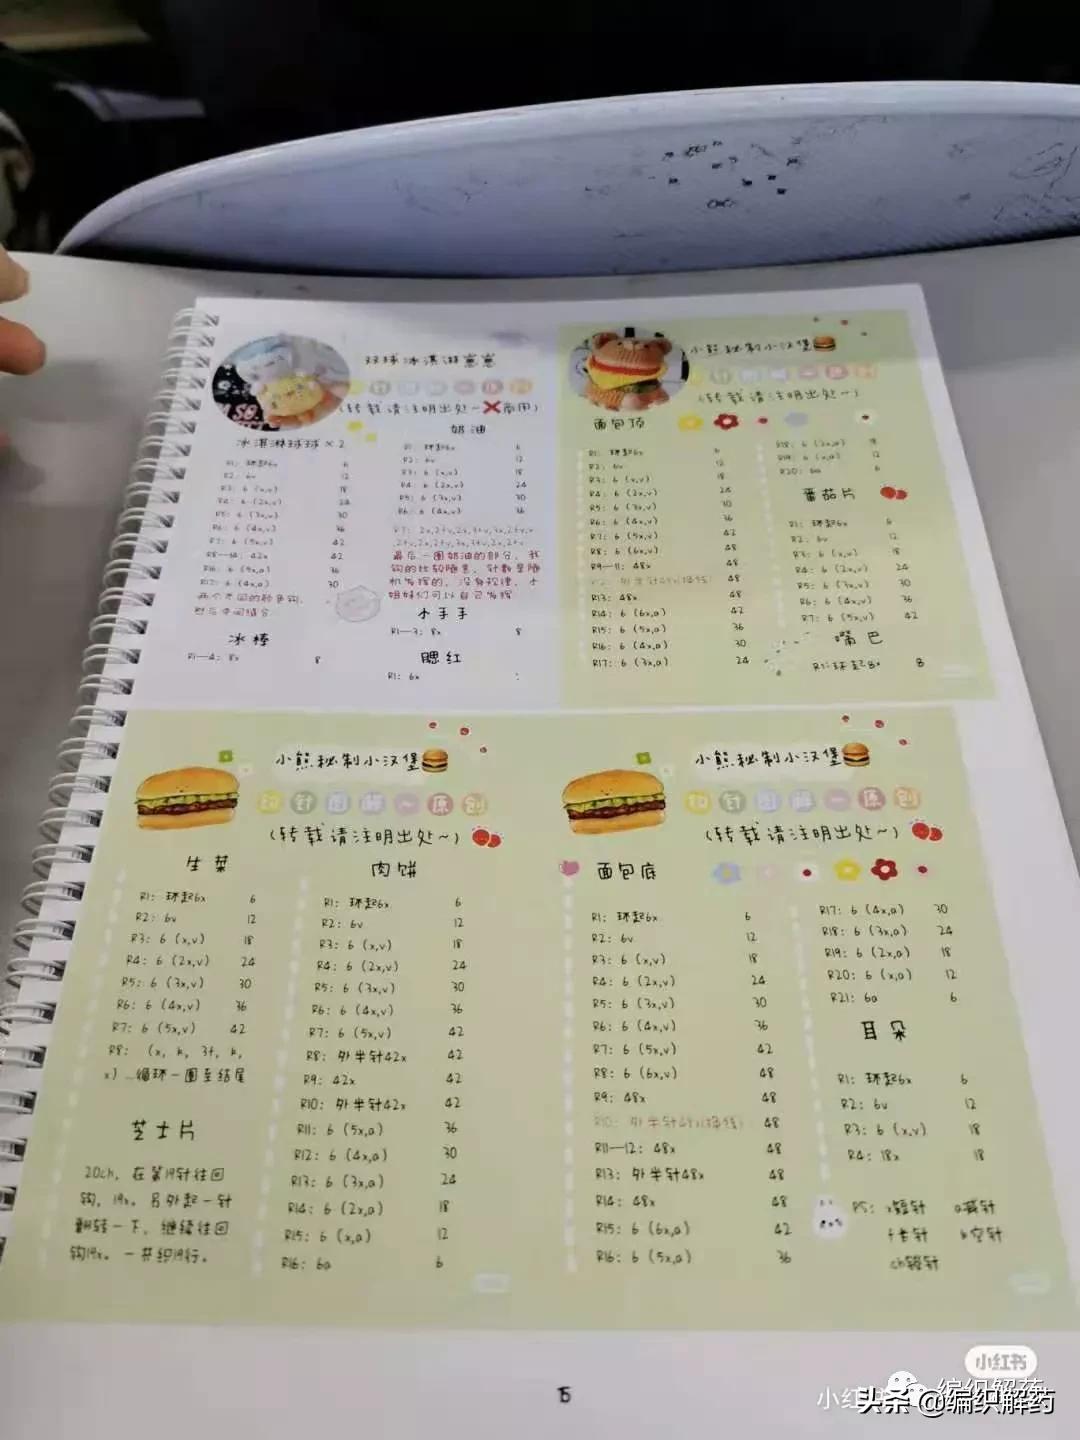 双球冰淇淋崽崽
(转载请注明出处~❌商用)
冰淇淋球球×2
R1: 环起6x 6
R2: 6v 12
R3: 6 (x,v) 18
R4: 6 (2x,v) 24
R5: 6 (3x,v) 30
R6: 6 (4x,v) 36
R7: 6 (5x,v) 42
R8—14: 42x 42
R16: 6 (5x,a) 36
R17: 6 (4x,a) 30
两个不同的颜色钩,
然后中间缝合
冰棒
R1—4: 8x 8
奶油
R1: 环起6x 6
R2: 6v 12
R3: 6 (x,v) 18
R4: 6 (2x,v) 24
R5: 6 (3x,v) 30
R6: 6 (4x,v) 36
最后一圈奶油的部分, 我
钩的比较随意, 针数是随
机发挥的, 没有规律, 小
姐妹们可以自己发挥
小手手
R1—3: 8x 8
腮红
R1: 6x
小熊秘制小汉堡
(转载请注明出处~)
面包顶
R1: 环起6x 6
R2: 6v 12
R3: 6 (x,v) 18
R4: 6 (2x,v) 24
R5: 6 (3x,v) 30
R6: 6 (4x,v) 36
R7: 6 (5x,v) 42
R8: 6 (6x,v) 48
R9—11: 48x 48
R12: 外半针48x(换线) 48
R13: 48x 48
R14: 6 (6x,a) 42
R15: 6 (5x,a) 36
R16: 6 (4x,a) 30
R17: 6 (3x,a) 24
R18: 6 (2x,a) 18
R19: 6 (x,a) 12
R20: 6a 6
番茄片
R1: 环起6x 6
R2: 6v 12
R3: 6 (x,v) 18
R4: 6 (2x,v) 24
R5: 6 (3x,v) 30
R6: 6 (4x,v) 36
R7: 6 (5x,v) 42
嘴巴
R1: 环起8x 8
小熊秘制小汉堡
钩针图解~原创
(转载请注明出处~)
生菜
R1: 环起6x 6
R2: 6v 12
R3: 6 (x,v) 18
R4: 6 (2x,v) 24
R5: 6 (3x,v) 30
R6: 6 (4x,v) 36
R7: 6 (5x,v) 42
R8: (x, k, 3f, k,
x) …循环一圈至结尾
芝士片
20ch, 在第19针往回
钩, 19x。另外起一针
翻转一下, 继续往回
钩19x。一共织19行。
肉饼
R1: 环起6x 6
R2: 6v 12
R3: 6 (x,v) 18
R4: 6 (2x,v) 24
R5: 6 (3x,v) 30
R6: 6 (4x,v) 36
R7: 6 (5x,v) 42
R8: 外半针42x 42
R9: 42x 42
R10: 外半针42x 42
R11: 6 (5x,a) 36
R12: 6 (4x,a) 30
R13: 6 (3x,a) 24
R14: 6 (2x,a) 18
R15: 6 (x,a) 12
R16: 6a 6
小熊秘制小汉堡
钩针图解~原创
(转载请注明出处~)
面包底
R1: 环起6x 6
R2: 6v 12
R3: 6 (x,v) 18
R4: 6 (2x,v) 24
R5: 6 (3x,v) 30
R6: 6 (4x,v) 36
R7: 6 (5x,v) 42
R8: 6 (6x,v) 48
R9: 48x 48
R10: 外半针48x(换线) 48
R11—12: 48x 48
R13: 外半针48x 48
R14: 48x 48
R15: 6 (6x,a) 42
R16: 6 (5x,a) 36
R17: 6 (4x,a) 30
R18: 6 (3x,a) 24
R19: 6 (2x,a) 18
R20: 6 (x,a) 12
R21: 6a 6
耳朵
R1: 环起6x 6
R2: 6v 12
R3: 6 (x,v) 18
R4: 18x 18
PS: x短针 a减针
f长针 k空针
ch锁针
15
小红书
编织解药
头条 @编织解药